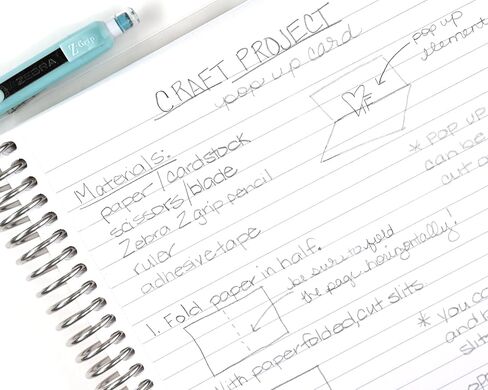 Z-Grip
ZEBRA
CRAFT PROJECT
pop up card
pop up
element
Materials:
paper/cardstock
scissors/blade
Zebra Z grip pencil
ruler
adhesive tape
* pop up
can be
cut
1. Fold paper in half.
be sure to fold
the page horizontally!
With paper folded, cut slits.
* you
and
slits